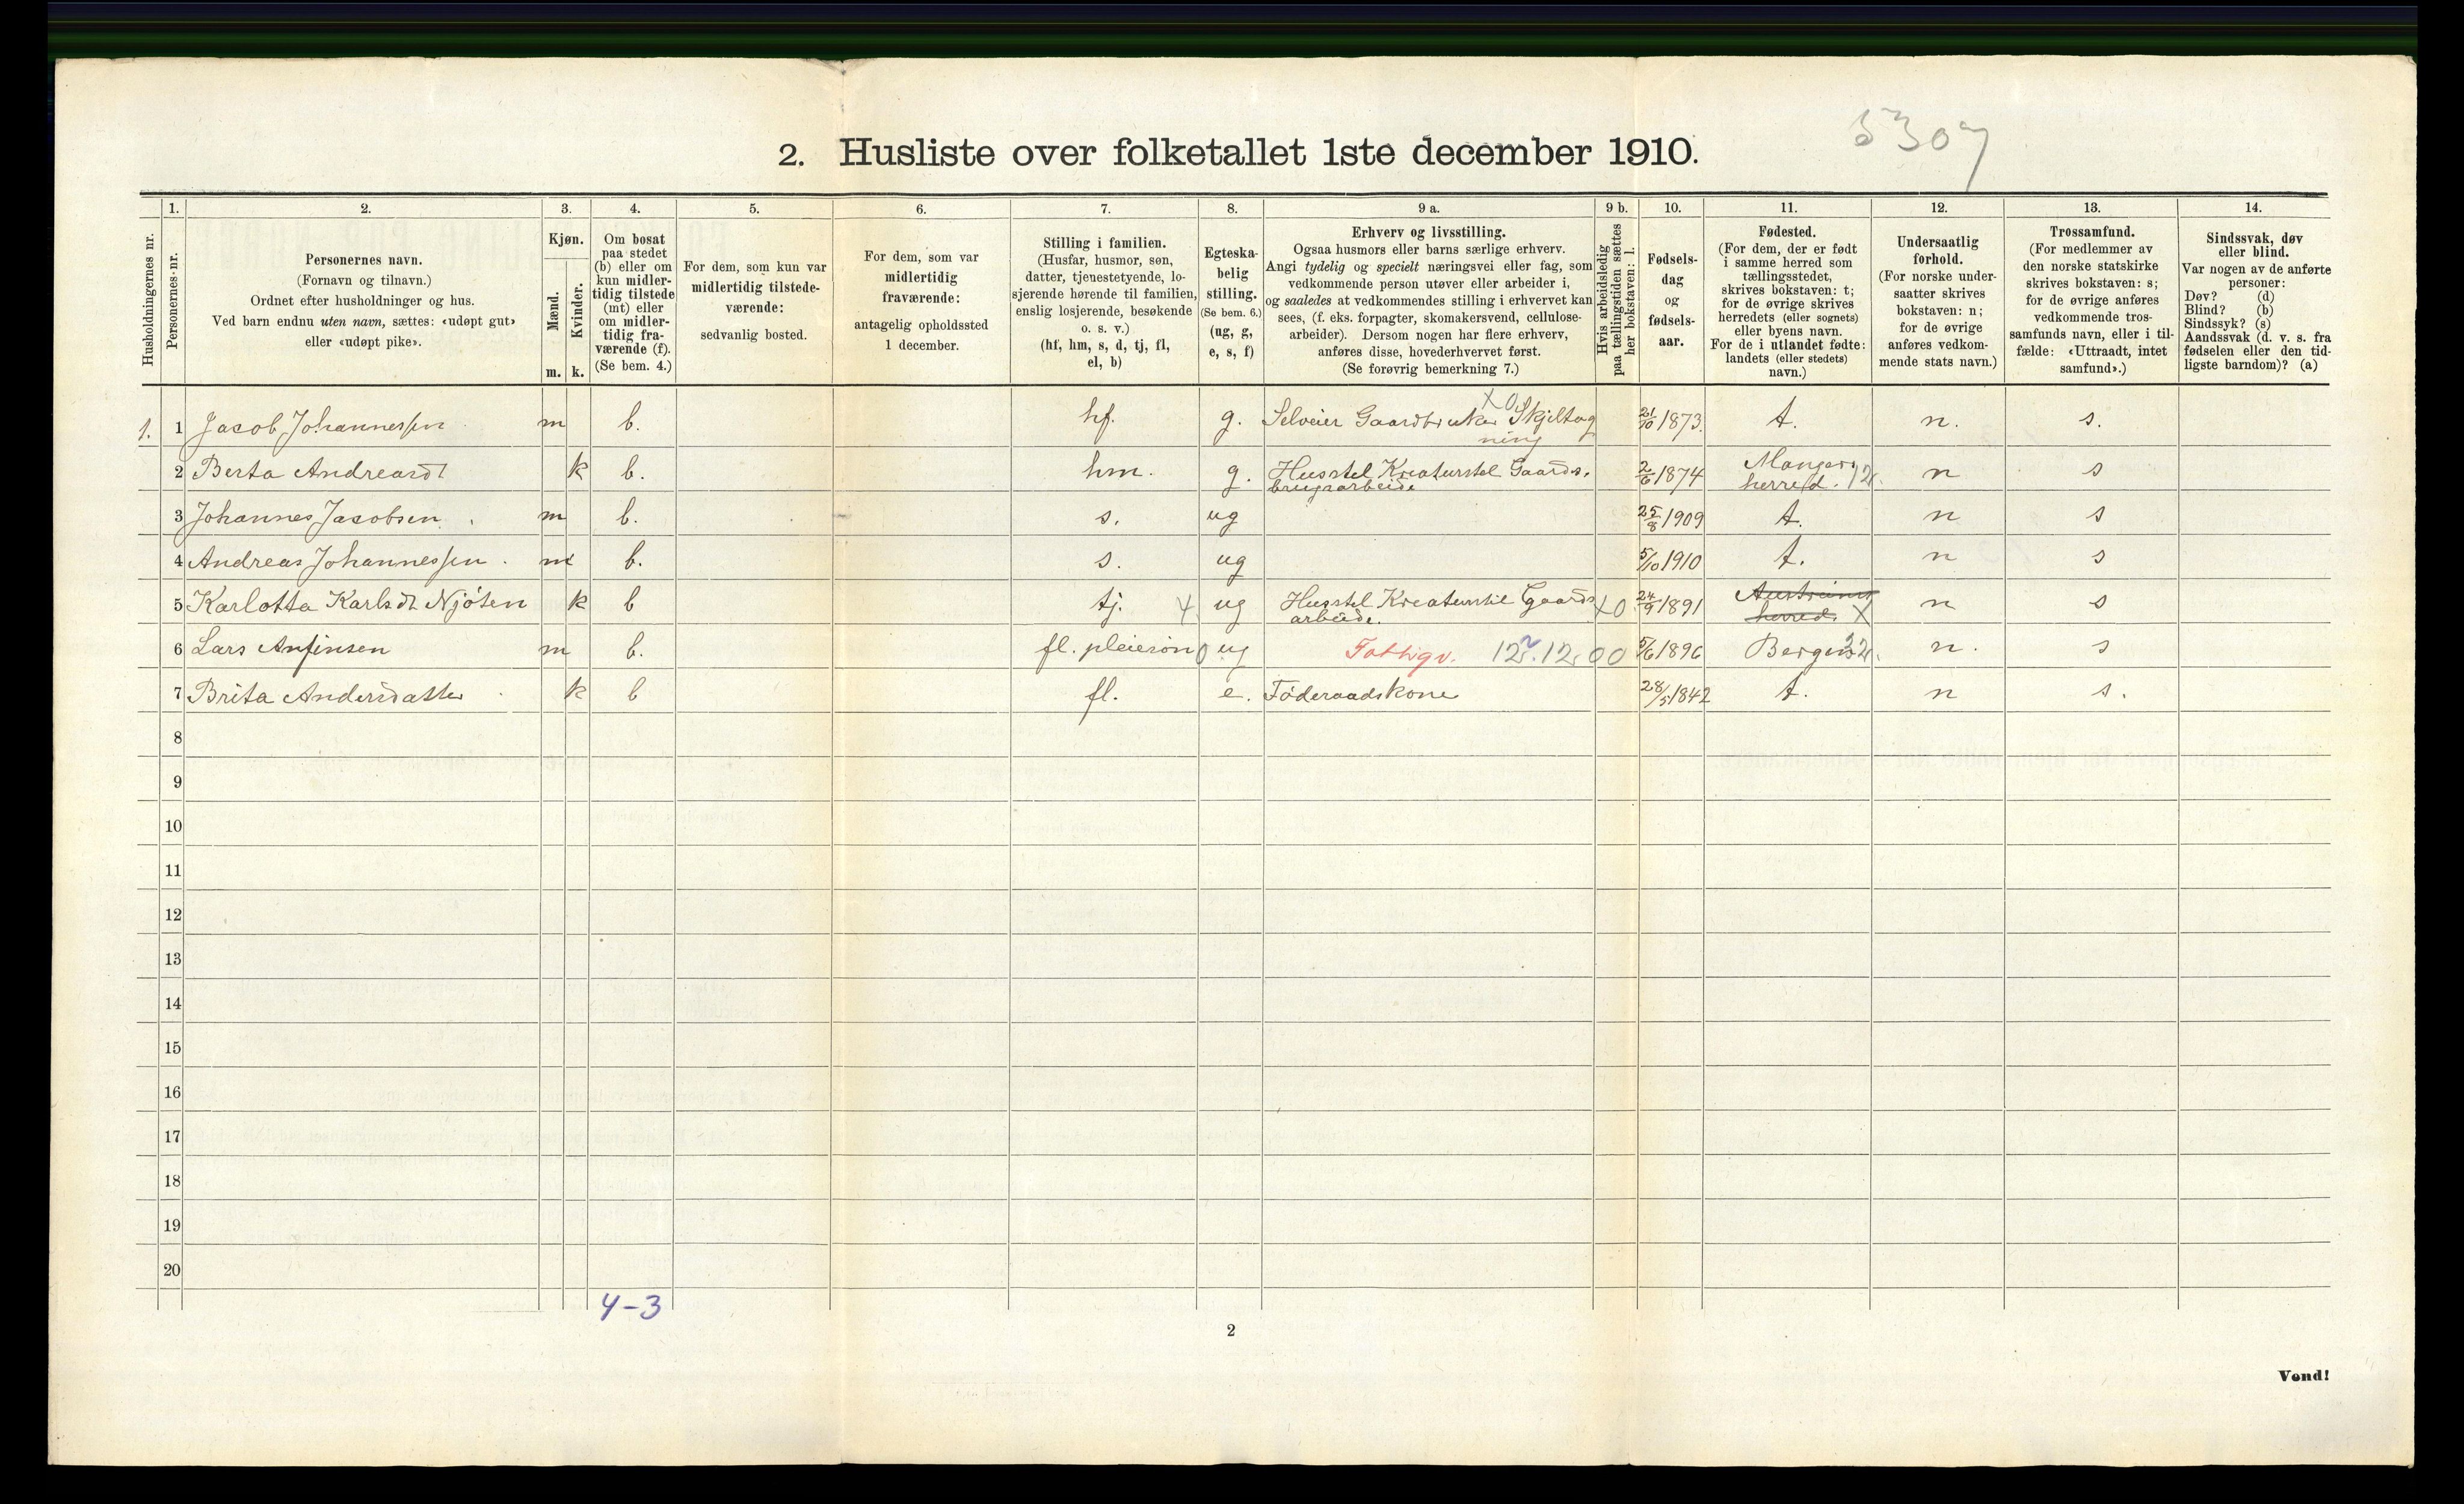 5307
2. Husliste over folketallet 1ste december 1910.
Husholdningernes nr.
1.
Personernes nr.
2.
Personernes navn.
(Fornavn og tilnavn.)
Ordnet efter husholdninger og hus.
Ved barn endnu uten navn, sættes: «udøpt gut»
eller «udøpt pike».
3.
Kjøn.
Mænd.
Kvinder.
m. k.
4.
Om bosat
paa stedet
(b) eller om
kun midler-
tidig tilstede
(mt) eller
om midler-
tidig fra-
værende (f).
(Se bem. 4.)
5.
For dem, som kun var
midlertidig tilstede-
værende:
sedvanlig bosted.
6.
For dem, som var
midlertidig
fraværende:
antagelig opholdssted
1 december.
7.
Stilling i familien.
(Husfar, husmor, søn,
datter, tjenestetyende, lo-
sjerende hørende til familien,
enslig losjerende, besøkende
o. s. v.)
(hf, hm, s, d, tj, fl,
el, b)
8.
Egteska-
belig
stilling.
(Se bem. 6.)
(ug, g,
e, s, f)
9 a.
Erhverv og livsstilling.
Ogsaa husmors eller barns særlige erhverv.
Angi tydelig og specielt næringsvei eller fag, som
vedkommende person utøver eller arbeider i,
og saaledes at vedkommendes stilling i erhvervet kan
sees, (f. eks. forpagter, skomakersvend, cellulose-
arbeider). Dersom nogen har flere erhverv,
anføres disse, hovederhvervet først.
(Se forøvrig bemerkning 7.)
9 b.
Hvis arbeidsledig
paa tællingstiden sættes
her bokstaven: l.
10.
Fødsels-
dag
og
fødsels-
aar.
11.
Fødested.
(For dem, der er født
i samme herred som
tællingsstedet,
skrives bokstaven: t;
for de øvrige skrives
herredets (eller sognets)
eller byens navn.
For de i utlandet fødte:
landets (eller stedets)
navn.)
12.
Undersaatlig
forhold.
(For norske under-
saatter skrives
bokstaven: n;
for de øvrige
anføres vedkom-
mende stats navn.)
13.
Trossamfund.
(For medlemmer av
den norske statskirke
skrives bokstaven: s;
for de øvrige anføres
vedkommende tros-
samfunds navn, eller i til-
fælde: «Uttraadt, intet
samfund».)
14.
Sindssvak, døv
eller blind.
Var nogen av de anførte
personer:
Døv? (d)
Blind? (b)
Sindssyk? (s)
Aandssvak (d. v. s. fra
fødselen eller den tid-
ligste barndom)? (a)
1. 1 Jacob Johannessen m b. hf. g. Selveier Gaardbruker Skjeltag X0 21/10 1873. t. n. s.
ning
2 Berta Andreasdt k b. hm. g. Husstel Kreaturstel Gaards. 2/6 1874 Manger n s
brugsarbeide herred. 12.
3 Johannes Jacobsen m b. s. ug 25/8 1909 t. n s
4 Andreas Johannessen m b. s. ug 5/10 1910 t. n s
5 Karlotta Karlsdt Njøten k b tj. 4 ug Husstel Kreaturstel Gaards X0 24/9 1891 n s
arbeide. herred. X
6 Lars Anfinsen m b. fl. pleiesøn 0 ug Fattigv. 12.12.00 5/6 1896 Bergen n. s
7 Brita Andersdatter k b fl. e. Föderaadskone 28/5 1842 t. n s.
8
9
10
11
12
13
14
15
16
17
18
19
20
4-3
2
Vend!